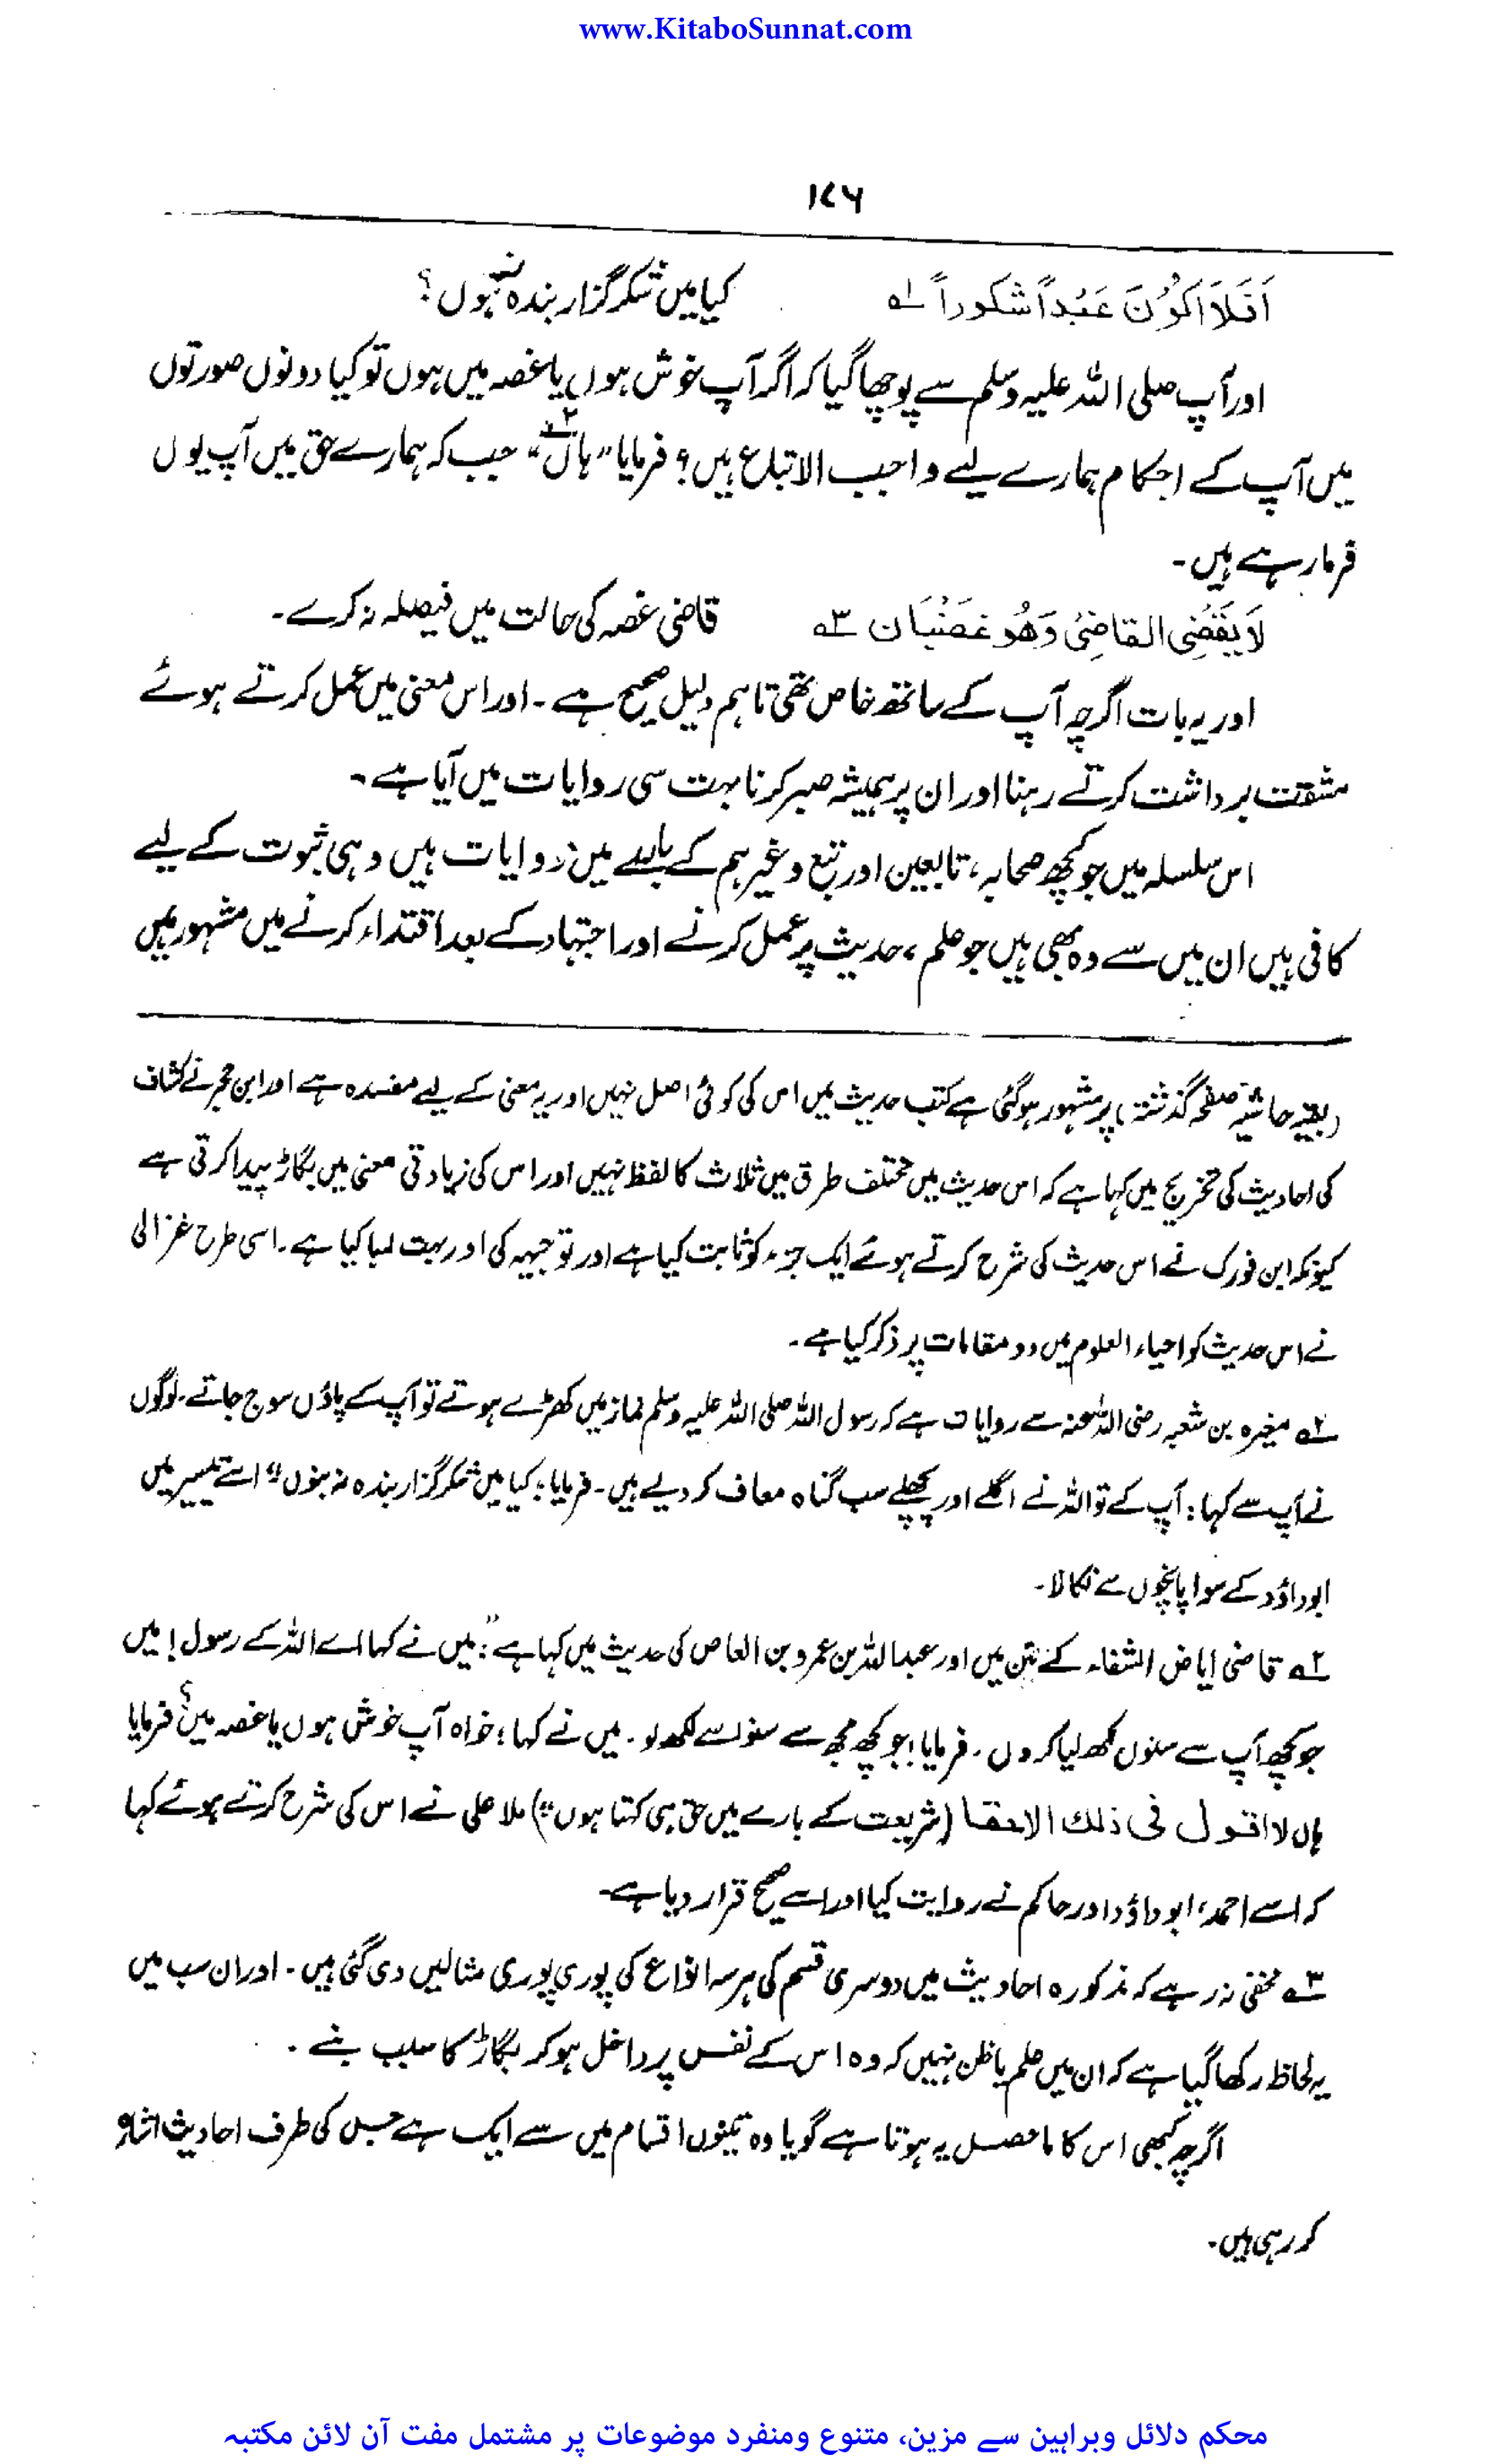 www.KitaboSunnat.com
۱۷۶
اَفَلَا اَکُوْنَ عَبْداً شکوراً ؎۱ کیا میں شکر گزار بندہ نہ بنوں؟
اور آپ صلی اللہ علیہ وسلم سے پوچھا گیا کہ اگر آپ خوش ہوں یا غصہ میں ہوں تو کیا دونوں صورتوں
میں آپ کے احکام ہمارے لیے واجب الاتباع ہیں؟ فرمایا "ہاں"؎۲ جب کہ ہمارے حق میں آپ یوں
فرما رہے ہیں۔
لَا یَقْضِی القاضِیْ وَھُوَ غَضْبَان ؎۳ قاضی غصہ کی حالت میں فیصلہ نہ کرے۔
اور یہ بات اگرچہ آپ کے ساتھ خاص تھی تاہم دلیل صحیح ہے۔ اور اس معنی میں عمل کرتے ہوئے
مشقت برداشت کرتے رہنا اور ان پر ہمیشہ صبر کرنا بہت سی روایات میں آیا ہے۔
اس سلسلہ میں جو کچھ صحابہ، تابعین اور تبع وغیرہم کے بارے میں روایات ہیں وہی ثبوت کے لیے
کافی ہیں ان میں سے وہ بھی ہیں جو علم، حدیث پر عمل کرنے اور اجتہاد کے بعد اقتداء کرنے میں مشہور ہیں
(بقیہ حاشیہ صفحہ گذشتہ) پر مشہور ہو گئی ہے کتب حدیث میں اس کی کوئی اصل نہیں اور یہ معنی کے لیے مفسدہ ہے اور ابن حجر نے کشاف
کی احادیث کی تخریج میں کہا ہے کہ اس حدیث میں مختلف طرق میں ثلاث کا لفظ نہیں اور اس کی زیادتی معنی میں بگاڑ پیدا کرتی ہے
کیونکہ ابن فورک نے اس حدیث کی شرح کرتے ہوئے ایک جزء کو ثابت کیا ہے اور توجیہہ کی اور بہت لمبا کیا ہے۔ اسی طرح غزالی
نے اس حدیث کو احیاء العلوم میں دو مقامات پر ذکر کیا ہے۔
؎۱ مغیرہ بن شعبہ رضی اللہ عنہ سے روایات ہے کہ رسول اللہ صلی اللہ علیہ وسلم نماز میں کھڑے ہوتے تو آپ کے پاؤں سوج جاتے۔ لوگوں
نے آپ سے کہا: آپ کے تو اللہ نے اگلے اور پچھلے سب گناہ معاف کر دیے ہیں۔ فرمایا: کیا میں شکر گزار بندہ نہ بنوں" اسے تیسیر میں
ابوداؤد کے سوا پانچوں سے نکالا۔
؎۲ قاضی ایاض الشفاء کے متن میں اور عبداللہ بن عمرو بن العاص کی حدیث میں کہا ہے: "میں نے کہا اے اللہ کے رسول! میں
جو کچھ آپ سے سنوں لکھ لیا کروں۔ فرمایا: جو کچھ مجھ سے سنو اسے لکھ لو۔ میں نے کہا: خواہ آپ خوش ہوں یا غصہ میں؟ فرمایا
ہاں لا اقول فی ذلك الا حقا (شریعت کے بارے میں حق ہی کہتا ہوں") ملا علی نے اس کی شرح کرتے ہوئے کہا
کہ اسے احمد، ابوداؤد اور حاکم نے روایت کیا اور اسے صحیح قرار دیا ہے۔
؎۳ مخفی نہ رہے کہ مذکورہ احادیث میں دوسری قسم کی ہر سہ انواع کی پوری پوری مثالیں دی گئی ہیں۔ اور ان سب میں
یہ لحاظ رکھا گیا ہے کہ ان میں علم یا ظن نہیں کہ وہ اس کے نفس پر داخل ہو کر بگاڑ کا سبب بنے۔
اگرچہ کبھی اس کا ماحصل یہ ہوتا ہے گویا وہ تینوں اقسام میں سے ایک ہے جس کی طرف احادیث اشارہ
کر رہی ہیں۔
محکم دلائل وبراہین سے مزین، متنوع ومنفرد موضوعات پر مشتمل مفت آن لائن مکتبہ